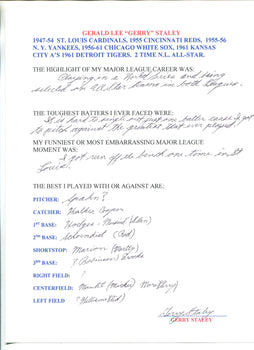 GERALD LEE "GERRY" STALEY
1947-54 ST. LOUIS CARDINALS, 1955 CINCINNATI REDS, 1955-56
N. Y. YANKEES, 1956-61 CHICAGO WHITE SOX, 1961 KANSAS
CITY A'S 1961 DETROIT TIGERS. 2 TIME N.L. ALL-STAR.
THE HIGHLIGHT OF MY MAJOR LEAGUE CAREER WAS:
Playing in a World Series and being
selected on All Star teams in both leagues.
THE TOUGHEST BATTERS I EVER FACED WERE:
It is hard to single out just one batter cause I got
to pitch against the greatest that ever played.
MY FUNNIEST OR MOST EMBARRASSING MAJOR LEAGUE
MOMENT WAS:
I got run off the bench one time in St
Louis.
THE BEST I PLAYED WITH OR AGAINST ARE:
PITCHER: Spahn?
CATCHER: Walker Cooper
1ST BASE: Hodges - Musial (Stan)
2ND BASE: Schoendist (Red)
SHORTSTOP: Marion (Marty)
3RD BASE: ? Robinson Brooks
RIGHT FIELD: ?
CENTERFIELD: Mantle (Mickey) Mays
LEFT FIELD ? Williams (Ted)
Gerry Staley
GERRY STALEY